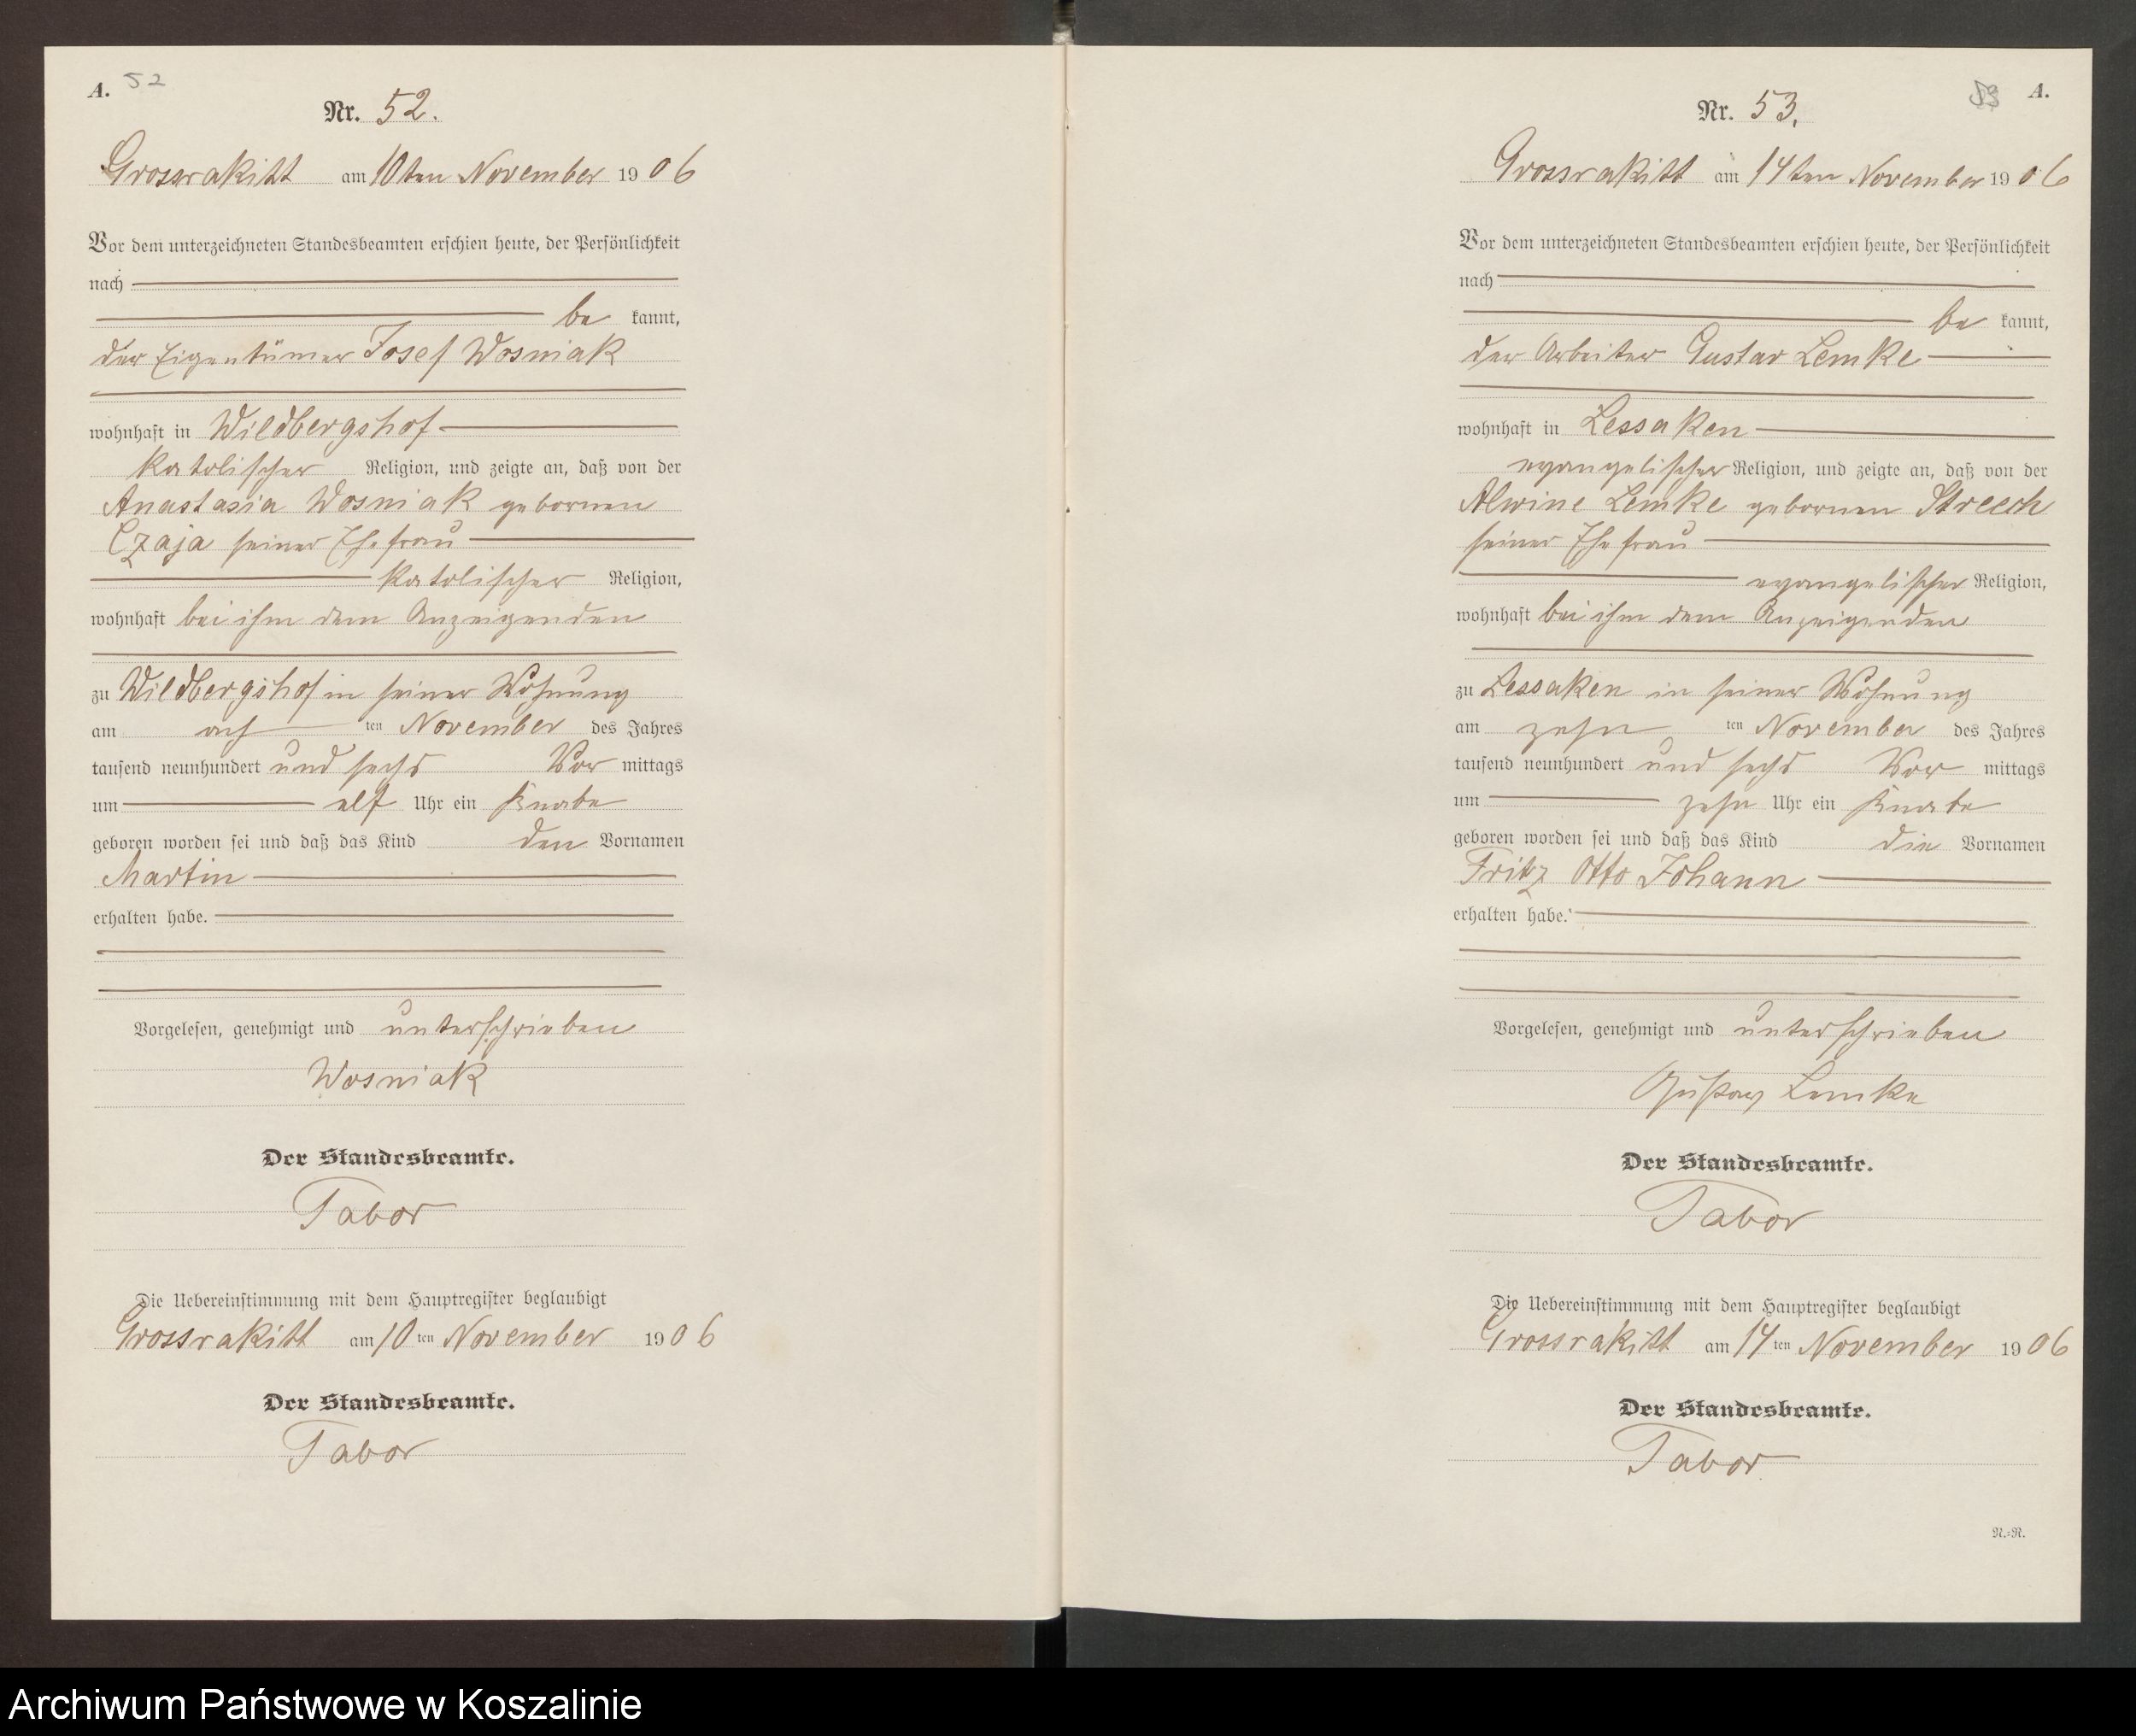 A. 52
Nr. 52.
Grossrakitt am 10ten November 1906
Vor dem unterzeichneten Standesbeamten erschien heute, der Persönlichkeit
nach
be kannt,
der Eigentümer Josef Wosniak
wohnhaft in Wildbergshof
katolischer Religion, und zeigte an, daß von der
Anastasia Wosniak gebornen
Czaja seiner Ehefrau
katolischer Religion,
wohnhaft bei ihm dem Anzeigenden
zu Wildbergshof in seiner Wohnung
am ach ten November des Jahres
tausend neunhundert und sechs Vor mittags
um elf Uhr ein Knabe
geboren worden sei und daß das Kind den Vornamen
Martin
erhalten habe.
Vorgelesen, genehmigt und unterschrieben
Wosniak
Der Standesbeamte.
Tabor
Die Uebereinstimmung mit dem Hauptregister beglaubigt
Grossrakitt am 10 ten November 1906
Der Standesbeamte.
Tabor
53 A.
Nr. 53.
Grossrakitt am 14ten November 1906
Vor dem unterzeichneten Standesbeamten erschien heute, der Persönlichkeit
nach
be kannt,
der Arbeiter Gustav Lemke
wohnhaft in Lessaken
evangelischer Religion, und zeigte an, daß von der
Alwine Lemke gebornen Streech
seiner Ehefrau
evangelischer Religion,
wohnhaft bei ihm dem Anzeigenden
zu Lessaken in seiner Wohnung
am zehn ten November des Jahres
tausend neunhundert und sechs Vor mittags
um zehn Uhr ein Knabe
geboren worden sei und daß das Kind die Vornamen
Fritz Otto Johann
erhalten habe.
Vorgelesen, genehmigt und unterschrieben
Gustav Lemke
Der Standesbeamte.
Tabor
Die Uebereinstimmung mit dem Hauptregister beglaubigt
Grossrakitt am 14 ten November 1906
Der Standesbeamte.
Tabor
N.=R.
Archiwum Państwowe w Koszalinie